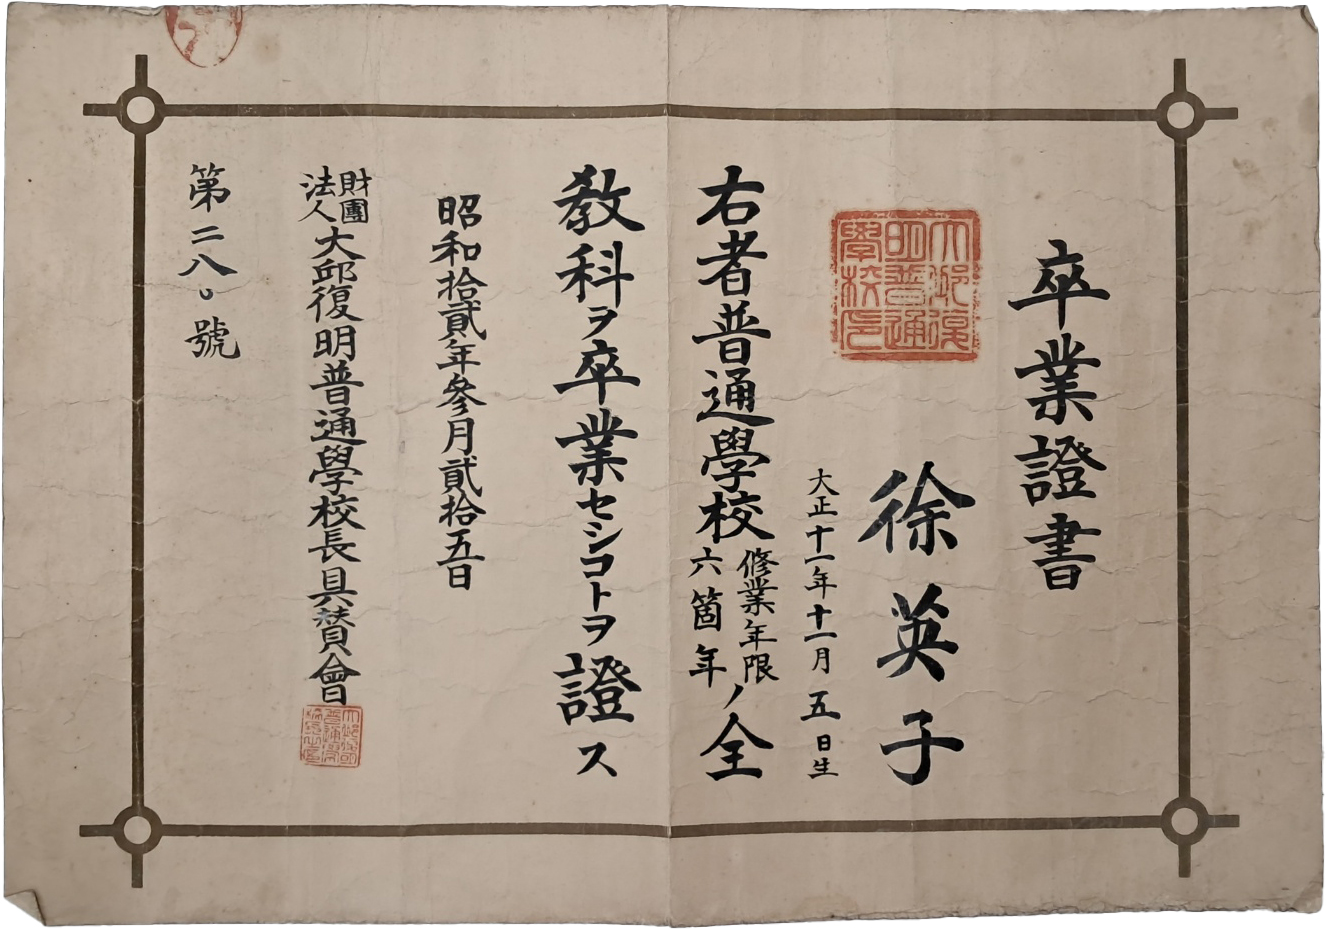 卒業證書
徐英子
大正十一年十一月五日生
大邱復明普通學校印
右者普通學校修業年限六箇年ノ全
教科ヲ卒業セシコトヲ證ス
昭和拾貳年參月貳拾五日
財團法人大邱復明普通學校長具賛會
第二八〇號